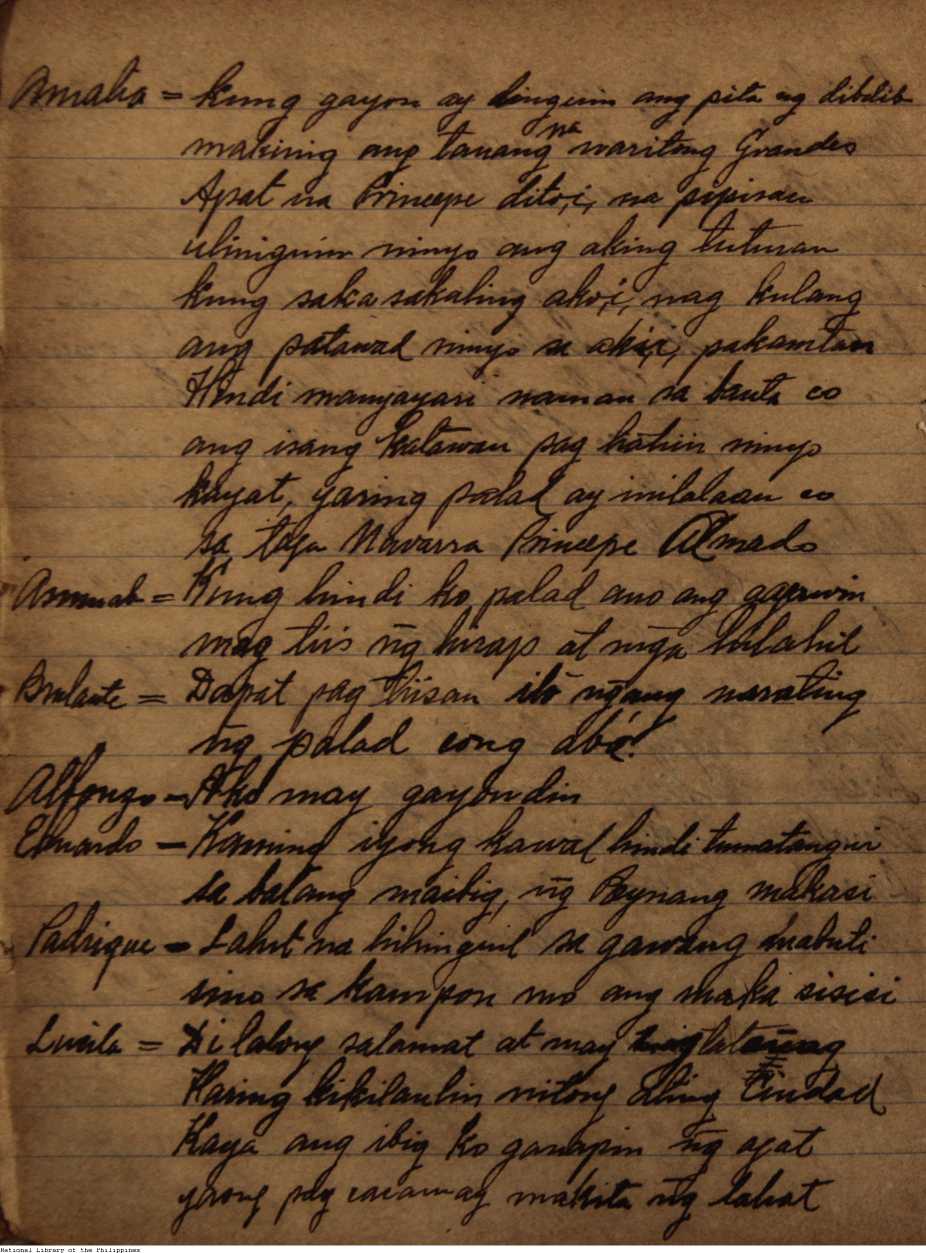 Amalia = Kung gayon ay dinguin ang pita ng dibdib
makinig ang tanang na naritong Grandes
Apat na Principe dito,i, na pipisan
uliniguin ninyo ang aking tuturan
kung saka sakaling ako,i, nag kulang
ang patawad ninyo sa aki,i, pakamtan
Hindi mangyayari naman sa banta co
ang isang katawan pag hatiin ninyo
kayat, yaring palad ay inilalaan co
sa taga Navarra Principe Almado
= Kung hindi ko palad ano ang gagawin
mag tiis ñg hirap at mga hilahil
Brulante = Dapat pag tiisan itó ñgang narating
ñg palad cong abá!
Alfonzo - Ako may gayon din
Eduardo - Kaming iyong kawal hindi tumatangui
sa balang maibig, ñg Reynang makasi
Padrique - Lahat na hihinguil sa gawang mabuti
sino sa kampon mo ang maka sisisi
Lucila = Di lalong salamat at may
Haring kikilanlin nitong ating Ciudad
Kaya ang ibig ko ganapin ñg agat
yaong pag cacawag makita ñg lahat
National Library of the Philippines